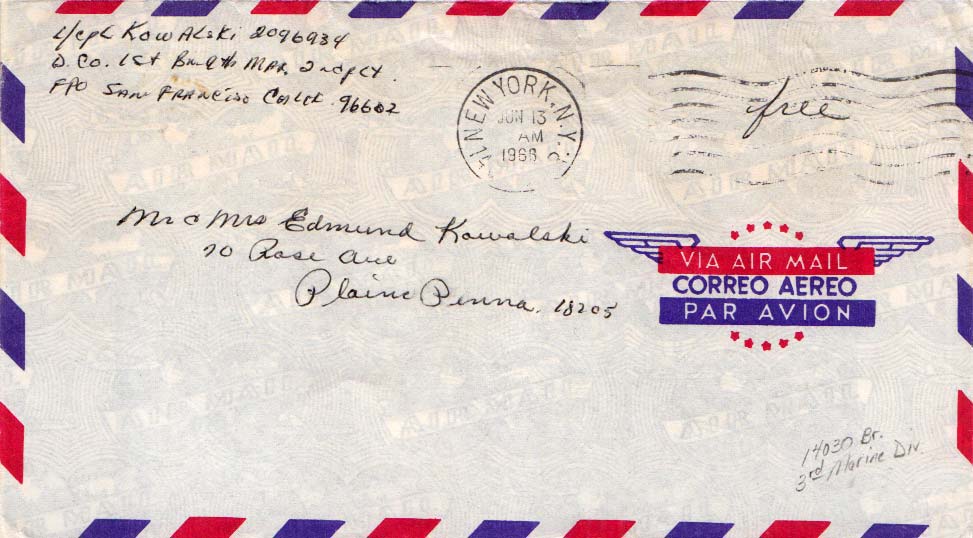 L/cpl Kowalski 2096934
D. Co. 1st Bn 9th Mar, 2nd plt.
FPO San Francisco Calif. 96602
NEW YORK, N.Y.
JUN 13
AM
1968
free
Mr & Mrs Edmund Kowalski
70 Rose Ave
Plains Penna. 18705
VIA AIR MAIL
CORREO AEREO
PAR AVION
14030 Br.
3rd Marine Div.